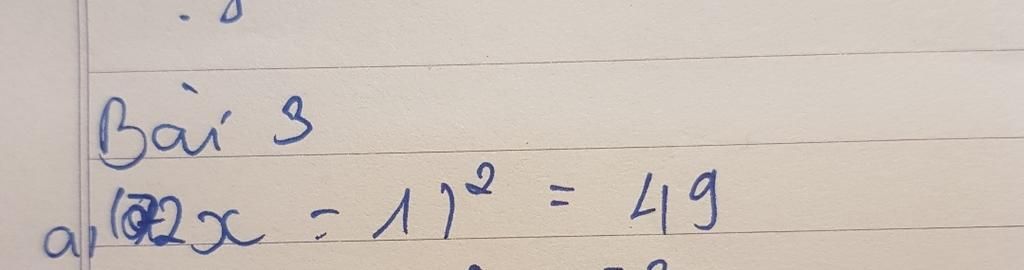 Bài 3
a, (2x - 1)² = 49